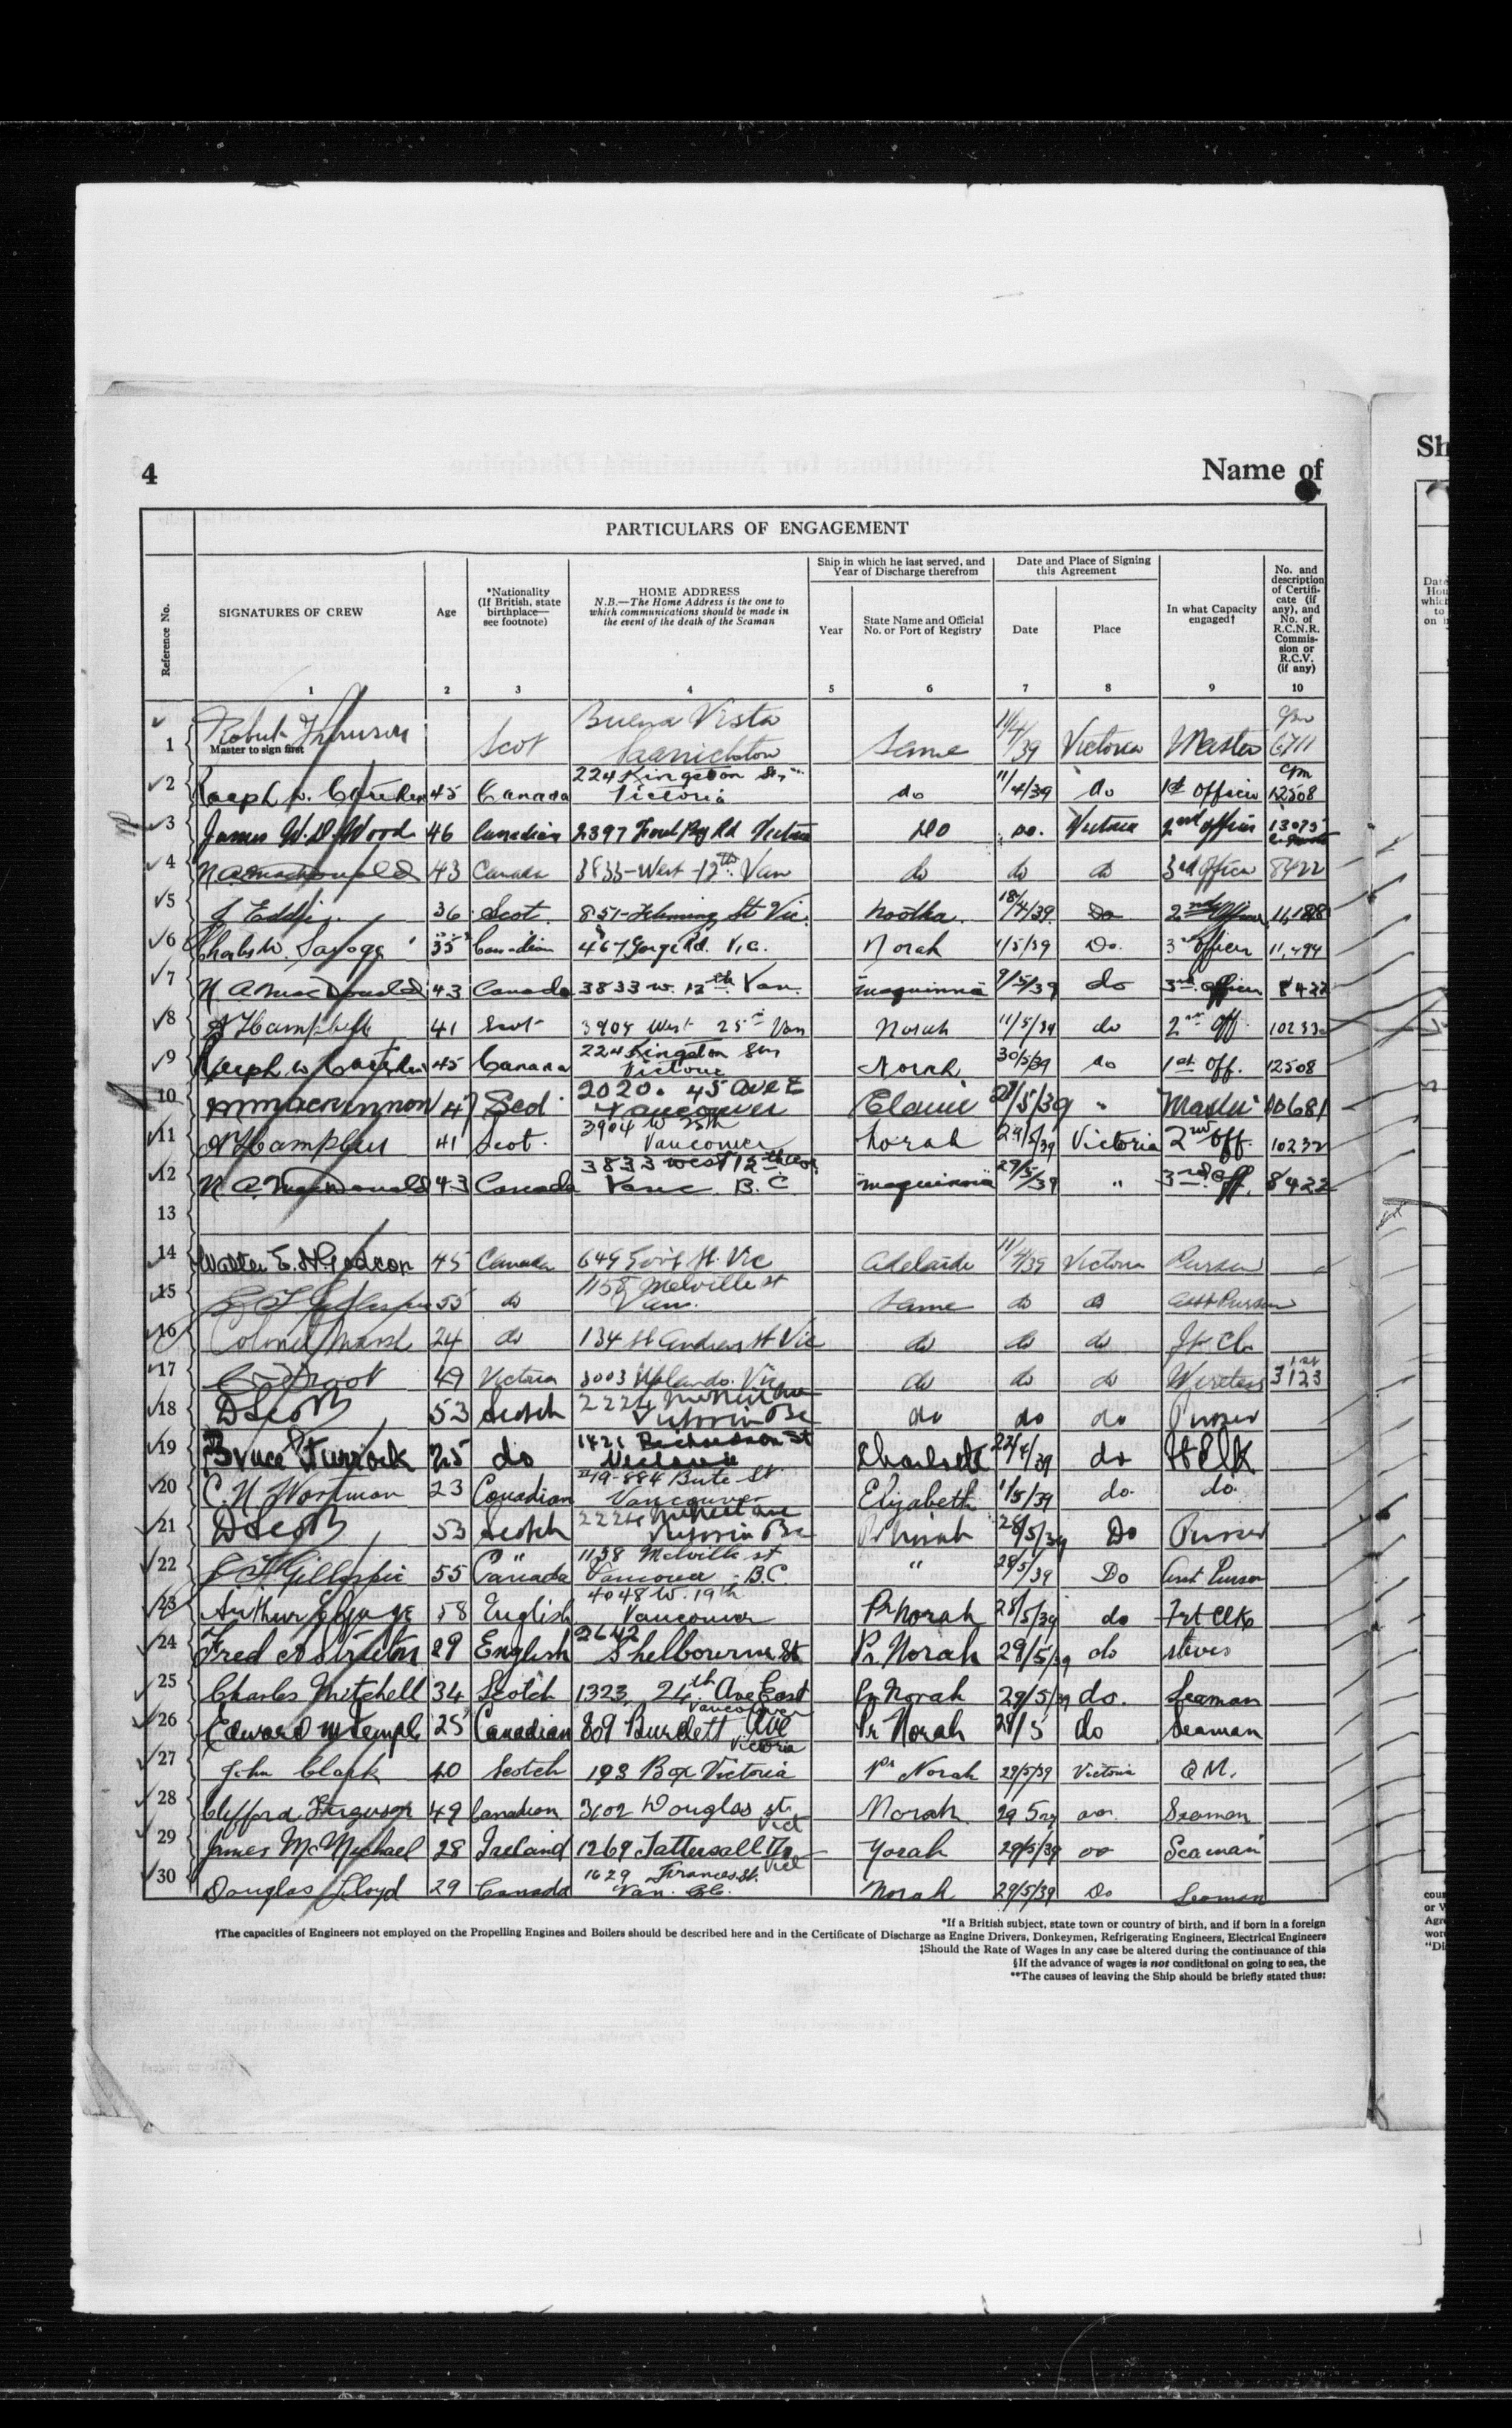 4
Name of
Sh
PARTICULARS OF ENGAGEMENT
Reference No.
SIGNATURES OF CREW
Age
*Nationality
(If British, state
birthplace—
see footnote)
HOME ADDRESS
N.B.—The Home Address is the one to
which communications should be made in
the event of the death of the Seaman
Ship in which he last served, and
Year of Discharge therefrom
Year
State Name and Official
No. or Port of Registry
Date and Place of Signing
this Agreement
Date
Place
In what Capacity
engaged†
No. and
description
of Certifi-
cate (if
any), and
No. of
R.C.N.R.
Commis-
sion or
R.C.V.
(if any)
1 2 3 4 5 6 7 8 9 10
Buena Vista
1 Robert Scot Saanichton Same 11/4/39 Victoria Master 6711
Master to sign first
224 Kingston St
2 Ralph W. 45 Canada Victoria do 11/4/39 do 1st Officer 12508
3 James W. D. Wood 46 Canadian 2397 Rd Victoria Do Do. Victoria 2nd Officer 13075
4 N A MacDonald 43 Canada 3833-West-12th Van do do do 3rd Officer 8422
5 J Eddie 36 Scot. 851 St. Vic. Nootka 18/4/39 Do 2nd Officer 11,188
6 Charles W. 35 Canadian 467 Gorge Rd. Vic. Norah 1/5/39 Do. 3rd Officer 11,494
7 N A MacDonald 43 Canada 3833 W. 12th Van. "Maquinna" 9/5/39 do 3rd Officer 8422
8 A Campbell 41 Scot 3904 West 25th Van Norah 11/5/39 do 2nd Off. 10232
224 Kingston St
9 Ralph W 45 Canada Victoria Norah 30/5/39 do 1st Off. 12508
2020. 45 Ave E
10 MacKinnon 47 Scot Vancouver Elaine 28/5/39 " Master 10681
3904 W 25th
11 A Campbell 41 Scot. Vancouver Norah 29/5/39 Victoria 2nd Off. 10232
3833 West 12th Ave.
12 N A. MacDonald 43 Canada Vanc. B.C. "Maquinna" 29/5/39 " 3rd Off. 8422
13
14 Walter E. 45 Canada 649 St. Vic Adelaide 11/4/39 Victoria Purser
1158 Melville st
15 Gillespie 55 do Van. Same do do Asst Purser
16 Colonel Marsh 24 do 134 St Andrew St Vic do do do
17 49 Victoria 3003 Uplands. Vic do do do Wireless 1st 3123
2224
18 D Scott 53 Scotch Victoria Bc do do do Purser
1421 Richardson St
19 Bruce Sturrock 25 do Victoria Charlotte 22/4/39 do
#19-884 Bute St
20 C. N. Workman 23 Canadian Vancouver Elizabeth 1/5/39 do. do.
2224
21 D Scott 53 Scotch Victoria Bc Pr Norah 28/5/39 Do Purser
1158 Melville st
22 Gillespie 55 Canada Vancouver - B.C. " 28/5/39 Do Asst Purser
4048 W. 19th
23 Arthur E Gage 58 English Vancouver Pr Norah 28/5/39 do Frt Clk
2642
24 Fred A 29 English Shelbourne St. Pr. Norah 29/5/39 do
25 Charles Mitchell 34 Scotch 1323 24th Ave East Pr Norah 29/5/39 do. Seaman
Vancouver
26 Edward M Temple 25 Canadian 809 Burdett Ave Pr Norah 29/5 do Seaman
Victoria
27 John Clark 40 Scotch 193 Box Victoria Pr Norah 29/5/39 Victoria Q M.
28 Clifford Ferguson 49 Canadian 3602 Douglas St. Norah 29 5 do. Seaman
Vict
29 James McMichael 28 Ireland 1269 Tattersall Dr Norah 29/5/39 do Seaman
Vict
1629 Frances St.
30 Douglas Lloyd 29 Canada Van. B.C. Norah 29/5/39 Do Seaman
*If a British subject, state town or country of birth, and if born in a foreign
†The capacities of Engineers not employed on the Propelling Engines and Boilers should be described here and in the Certificate of Discharge as Engine Drivers, Donkeymen, Refrigerating Engineers, Electrical Engineers
‡Should the Rate of Wages in any case be altered during the continuance of this
§If the advance of wages is not conditional on going to sea, the
**The causes of leaving the Ship should be briefly stated thus: